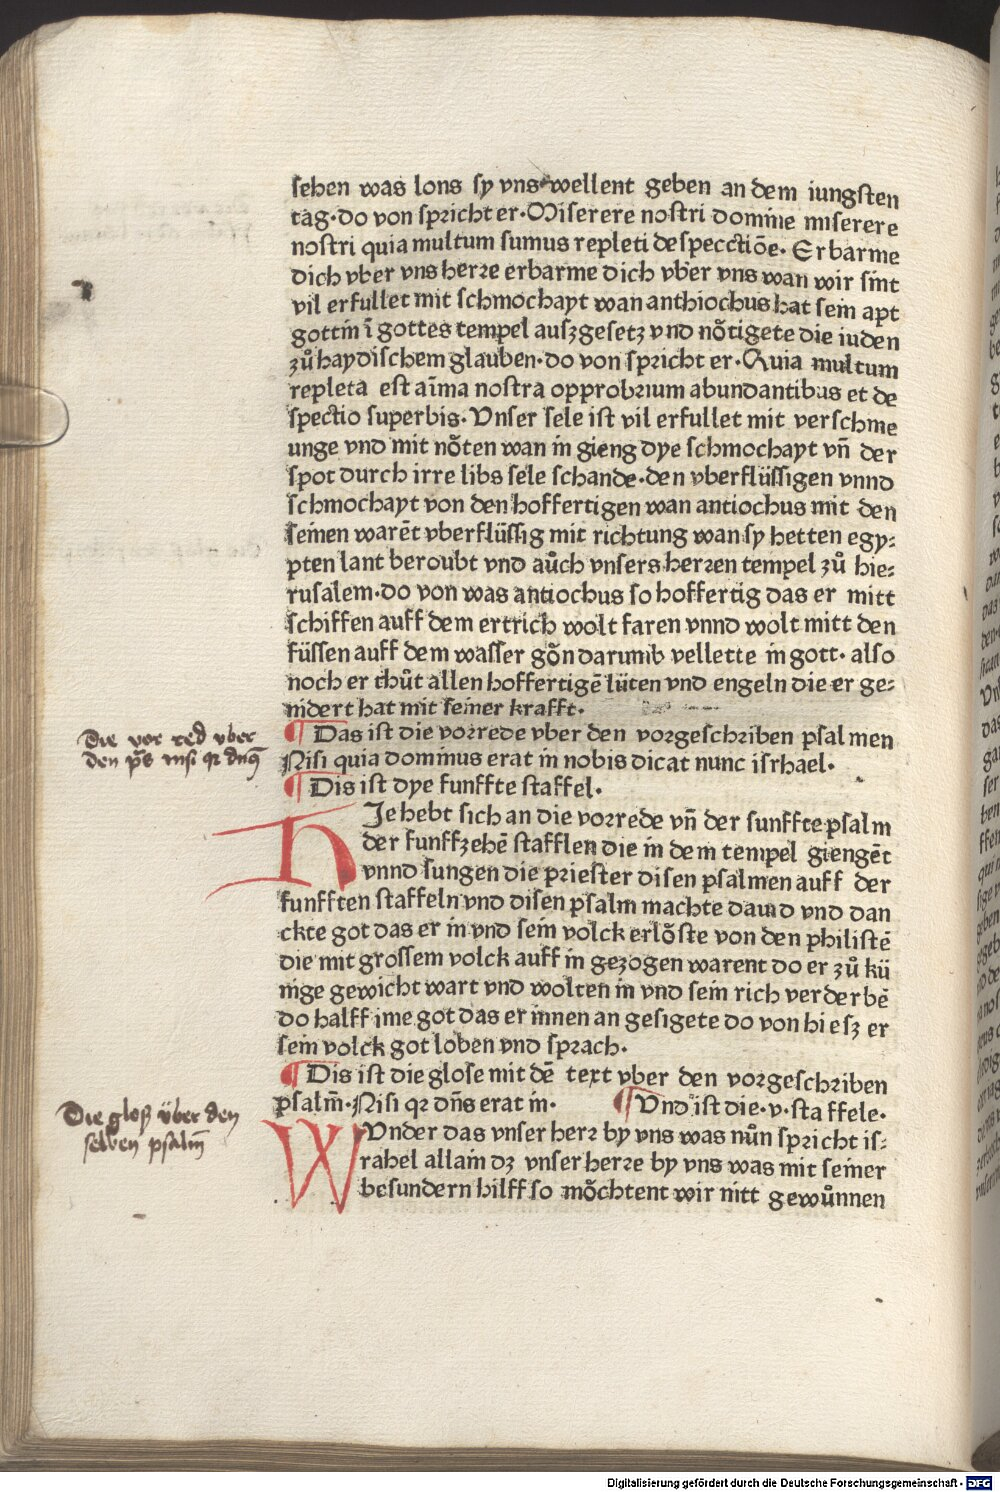 sehen was lons sy vns wellent geben an dem iungsten
tag·do von spricht er·Miserere nostri domine miserere
nostri quia multum sumus repleti despecctiōe· Erbarme
dich vber vns herre erbarme dich vber vns wan wir sint
vil erfullet mit schmochayt wan anthiochus hat sein apt
gottin ī gottes tempel auszgesetz vnd nötigete die iuden
zů haydischem glauben·do von spricht er·Quia multum
repleta est aīma nostra opprobrium abundantibus et de
spectio superbis·Vnser sele ist vil erfullet mit verschme
unge vnd mit nöten wan in gieng dye schmochayt vn̄ der
spot durch irre libs sele schande·den vberflüssigen vnnd
schmochayt von den hoffertigen wan antiochus mit den
seinen warēt vberflüssig mit richtung wan sy hetten egy⸗
pten lant beroubt vnd aůch vnsers herren tempel zů hie⸗
rusalem·do von was antiochus so hoffertig das er mitt
schiffen auff dem ertrich wolt faren vnnd wolt mitt den
füssen auff dem wasser gön darumb vellette in gott· also
noch er thůt allen hoffertigē lüten vnd engeln die er ge⸗
nidert hat mit seiner krafft·
¶ Das ist die vorrede vber den vorgeschriben psalmen
Nisi quia dominus erat in nobis dicat nunc israhel·
¶ Dis ist dye funffte staffel·
Die vor red vber
den ps nisi qr dn̄s
HJe hebt sich an die vorrede vn̄ der sunffte psalm
der funffzehē stafflen die in dem tempel giengēt
vnnd sungen die priester disen psalmen auff der
funfften staffeln vnd disen psalm machte dauid vnd dan
ckte got das er in vnd sein volck erlöste von den philistē
die mit grossem volck auff in gezogen warent do er zů kü
nige gewicht wart vnd wolten in vnd sein rich verderbē
do halff ime got das er innen an gesigete do von hiesz er
sein volck got loben vnd sprach·
¶ Dis ist die glose mit dē text vber den vorgeschriben
psalm̄·Nisi qr dn̄s erat in· ¶ Vnd ist die·v·staffele·
Die gloß über den
selben psalm̄
WVnder das vnser herr by vns was nůn spricht is⸗
rahel allain dz vnser herre by vns was mit seiner
besundern hilff so möchtent wir nitt gewůnnen
Digitalisierung gefördert durch die Deutsche Forschungsgemeinschaft - DFG